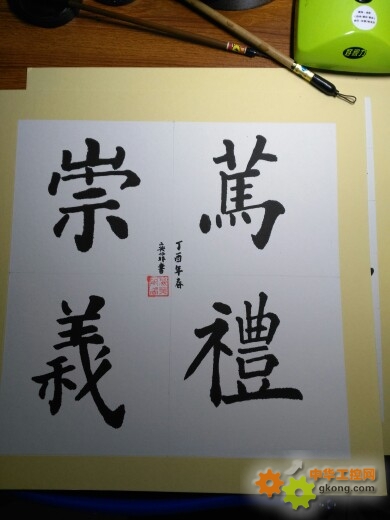 篤禮
崇義
丁酉年春
書
中华工控网
gkong.com